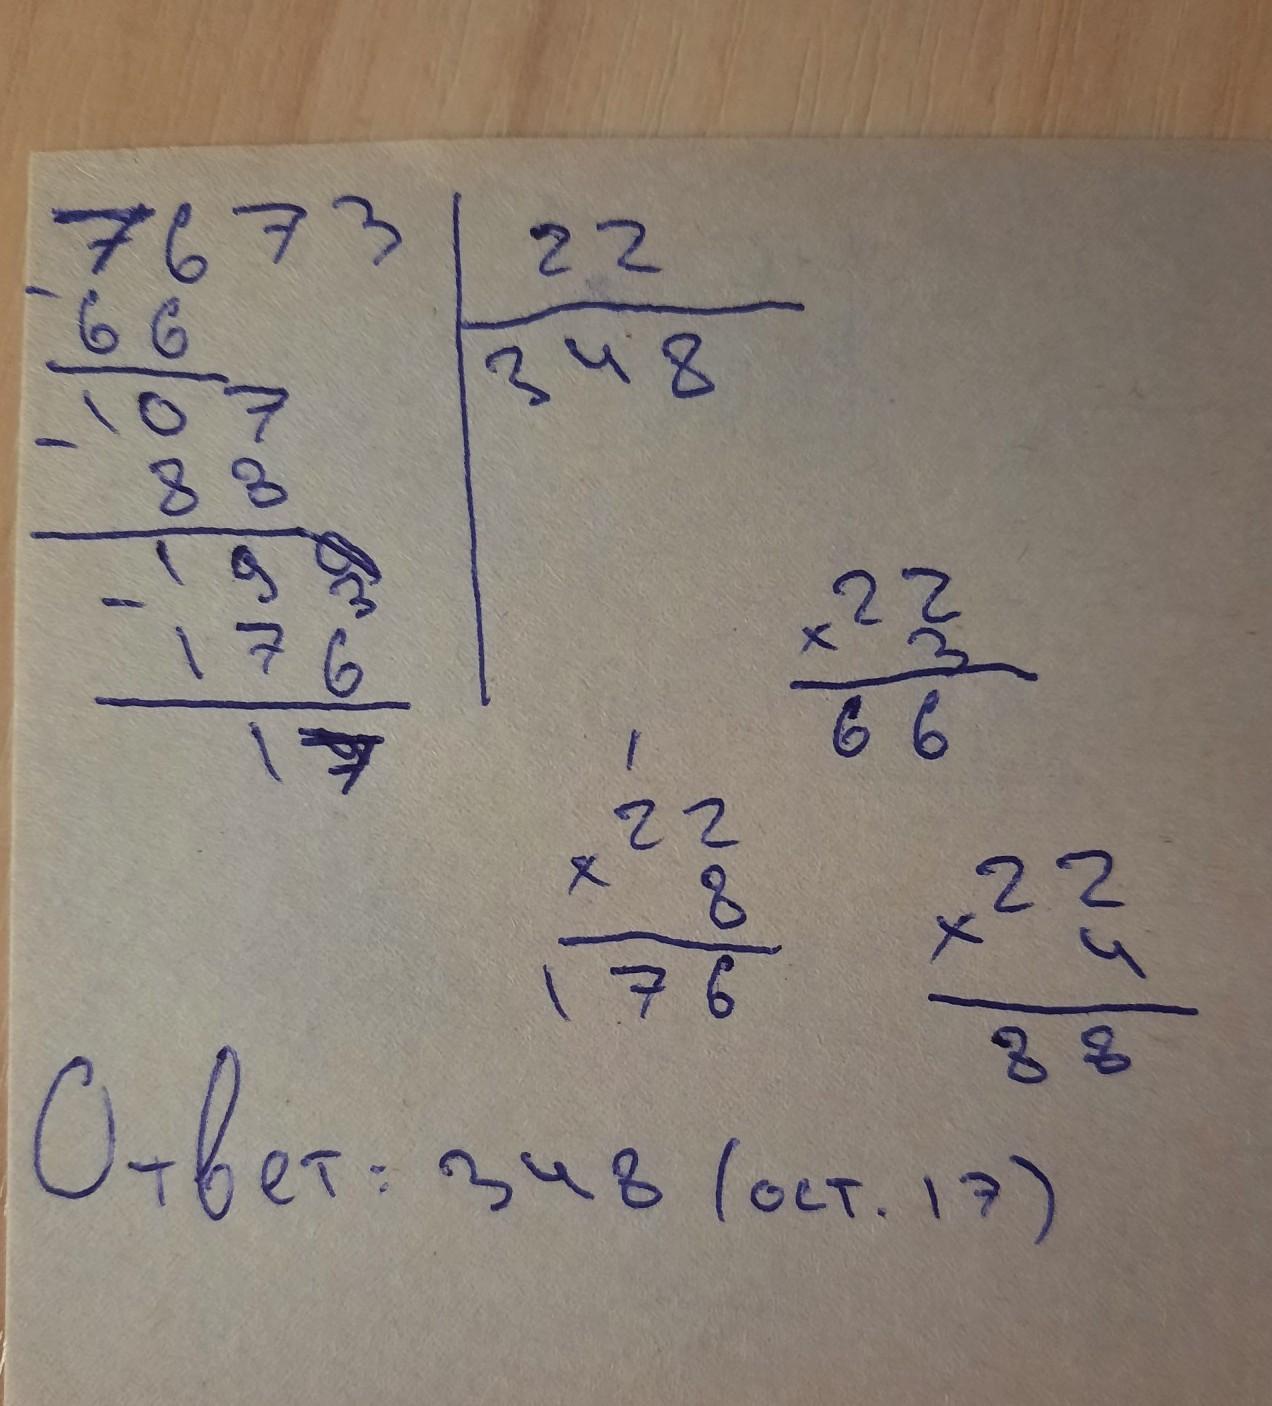 7673 22
- 66 348
107
- 88
193
- 176
17
22
× 3
66
1
22
× 8
176
22
× 4
88
Ответ: 348 (ост. 17)